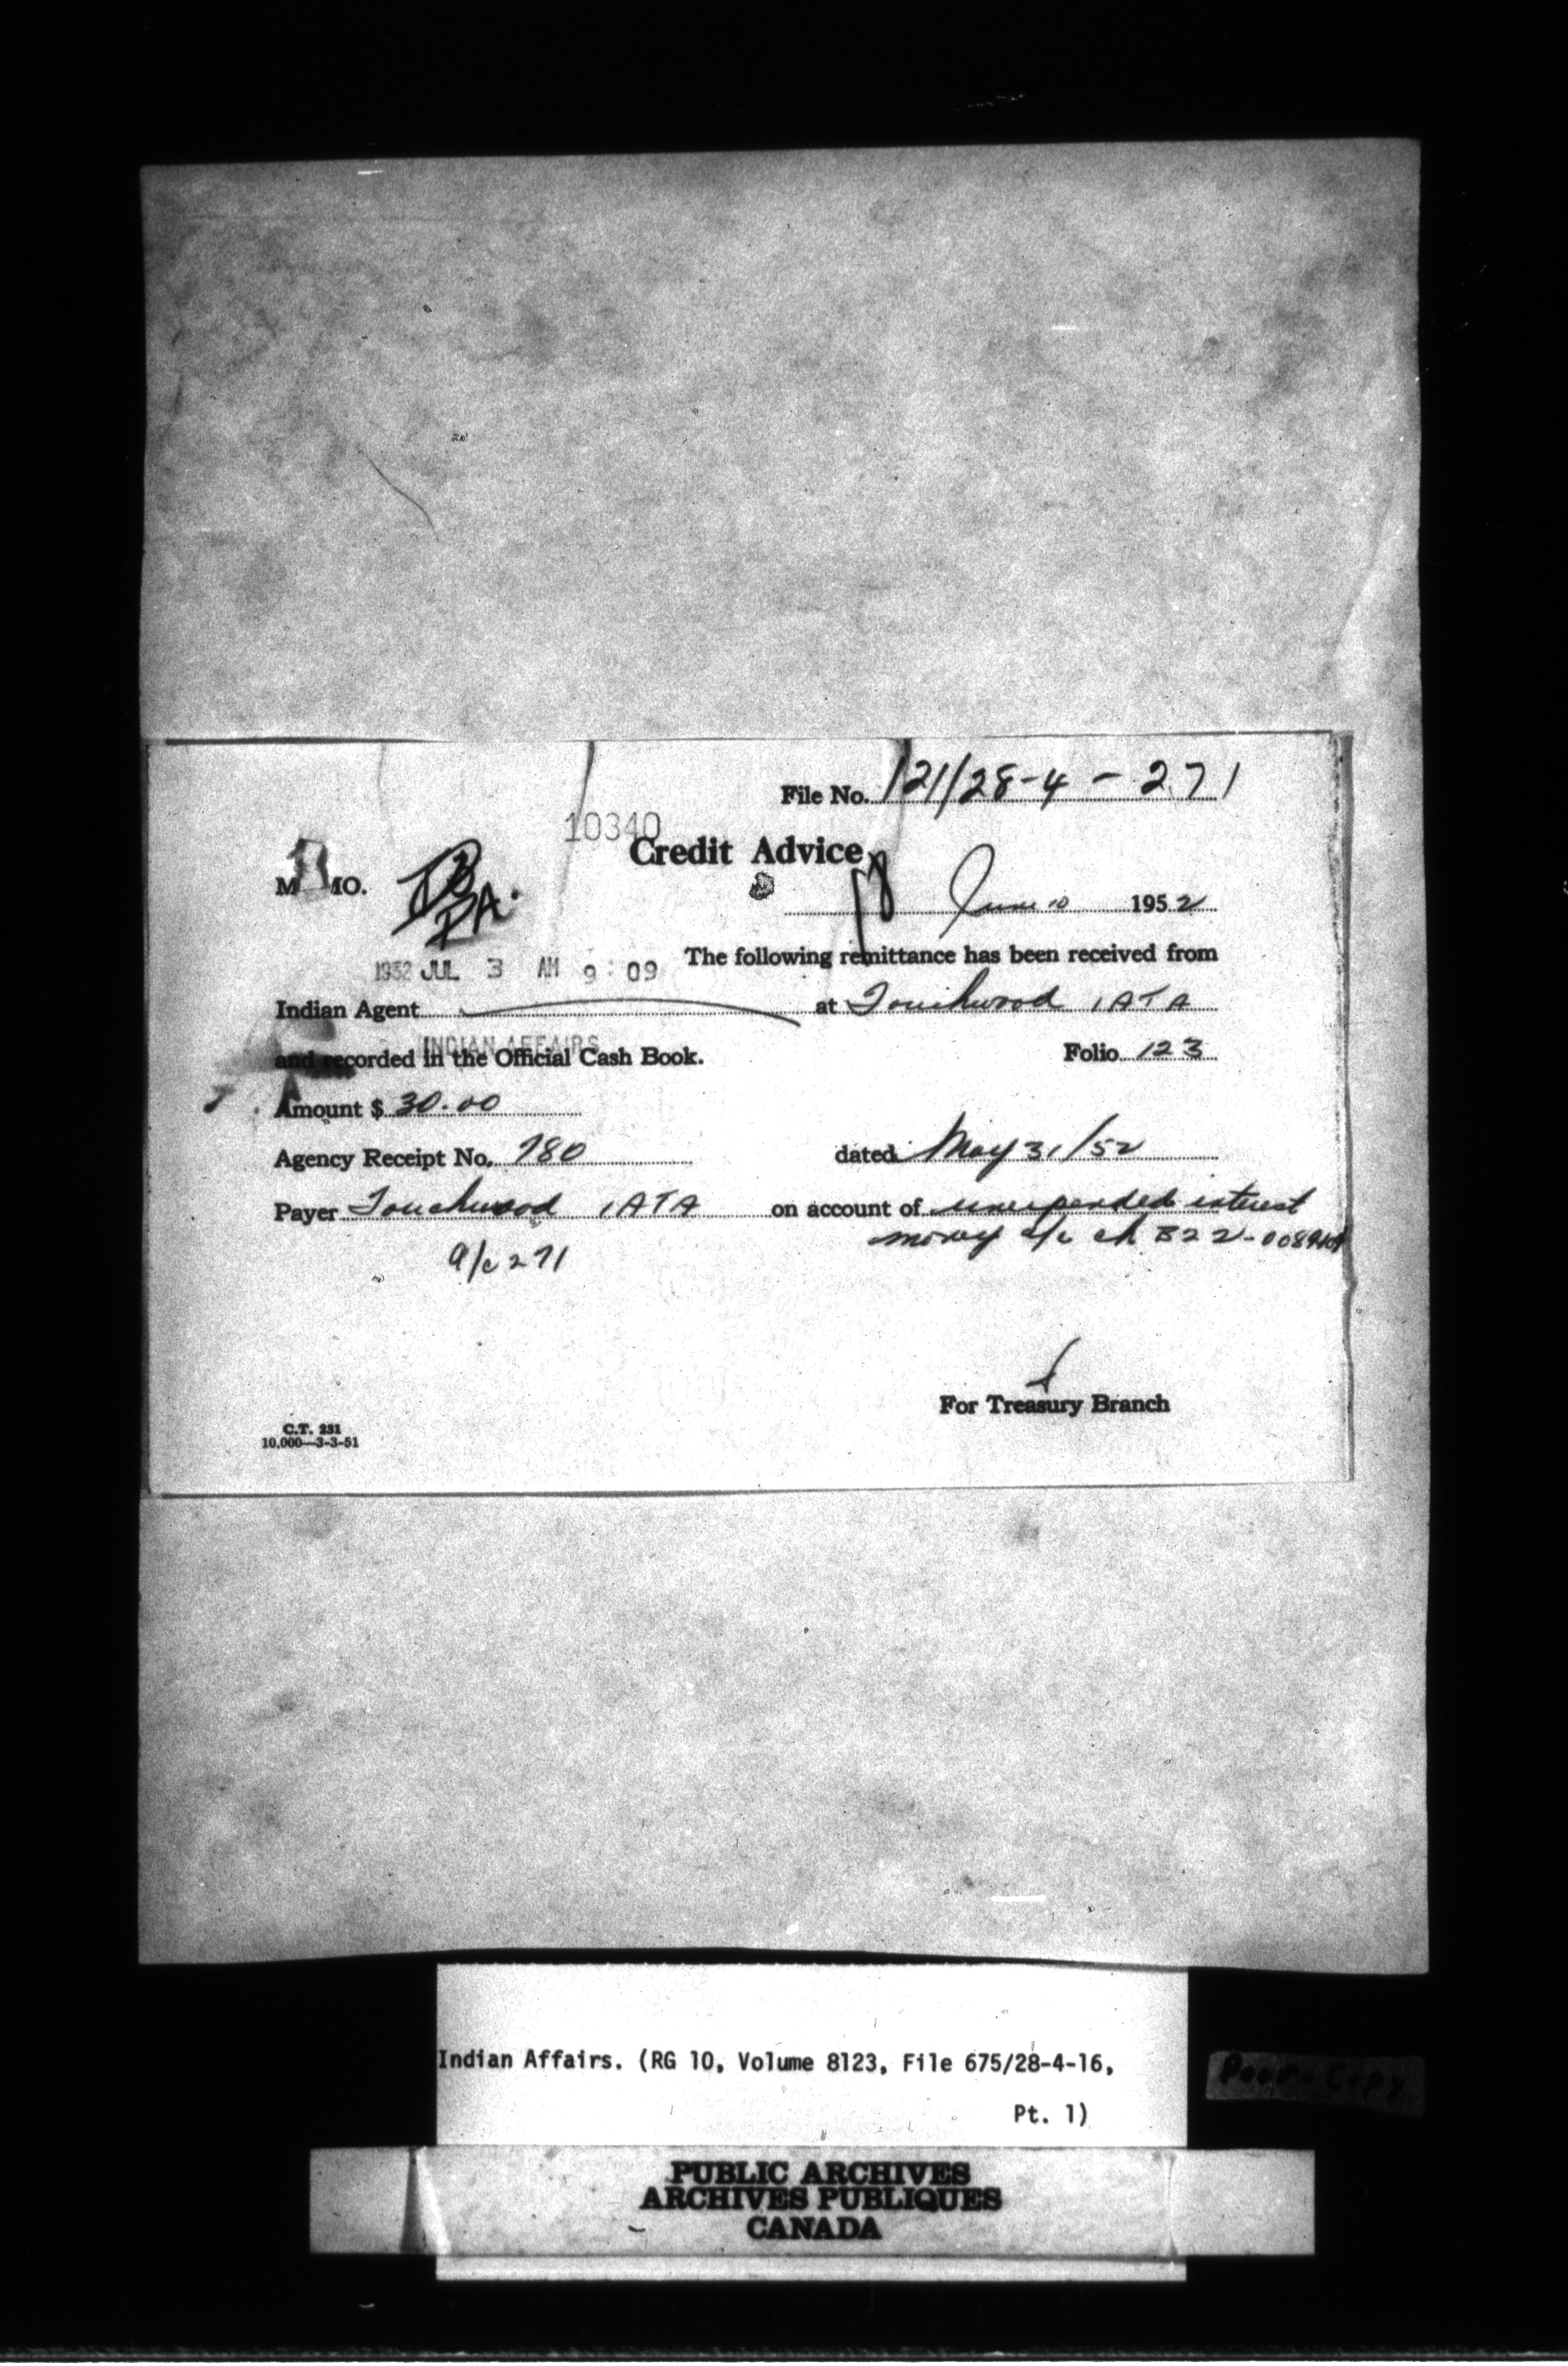 File No. 121/28-4 - 271
10340
Credit Advice
MEMO.
June 10 1952
1952 JUL 3 AM 9:09
The following remittance has been received from
Indian Agent at Touchwood IATA
INDIAN AFFAIRS
and recorded in the Official Cash Book. Folio 123
Amount $ 30.00
Agency Receipt No. 980 dated May 31/52
Payer Touchwood IATA on account of unexpended interest
money a/c ch B22-
a/c 271
For Treasury Branch
C.T. 231
10,000—3-3-51
Indian Affairs. (RG 10, Volume 8123, File 675/28-4-16,
Pt. 1)
Poor - Copy
PUBLIC ARCHIVES
ARCHIVES PUBLIQUES
CANADA